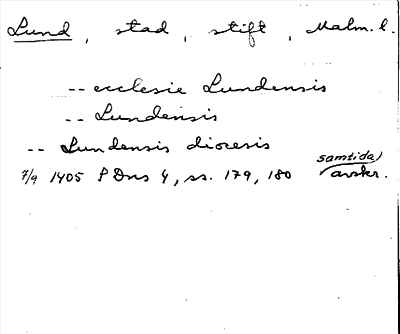 Lund, stad, stift, Malm. l.
-- ecclesie Lundensis
-- Lundensis
-- Lundensis diocesis
samtida)
7/9 1405 P Dns 4, ss. 179, 180 avskr.